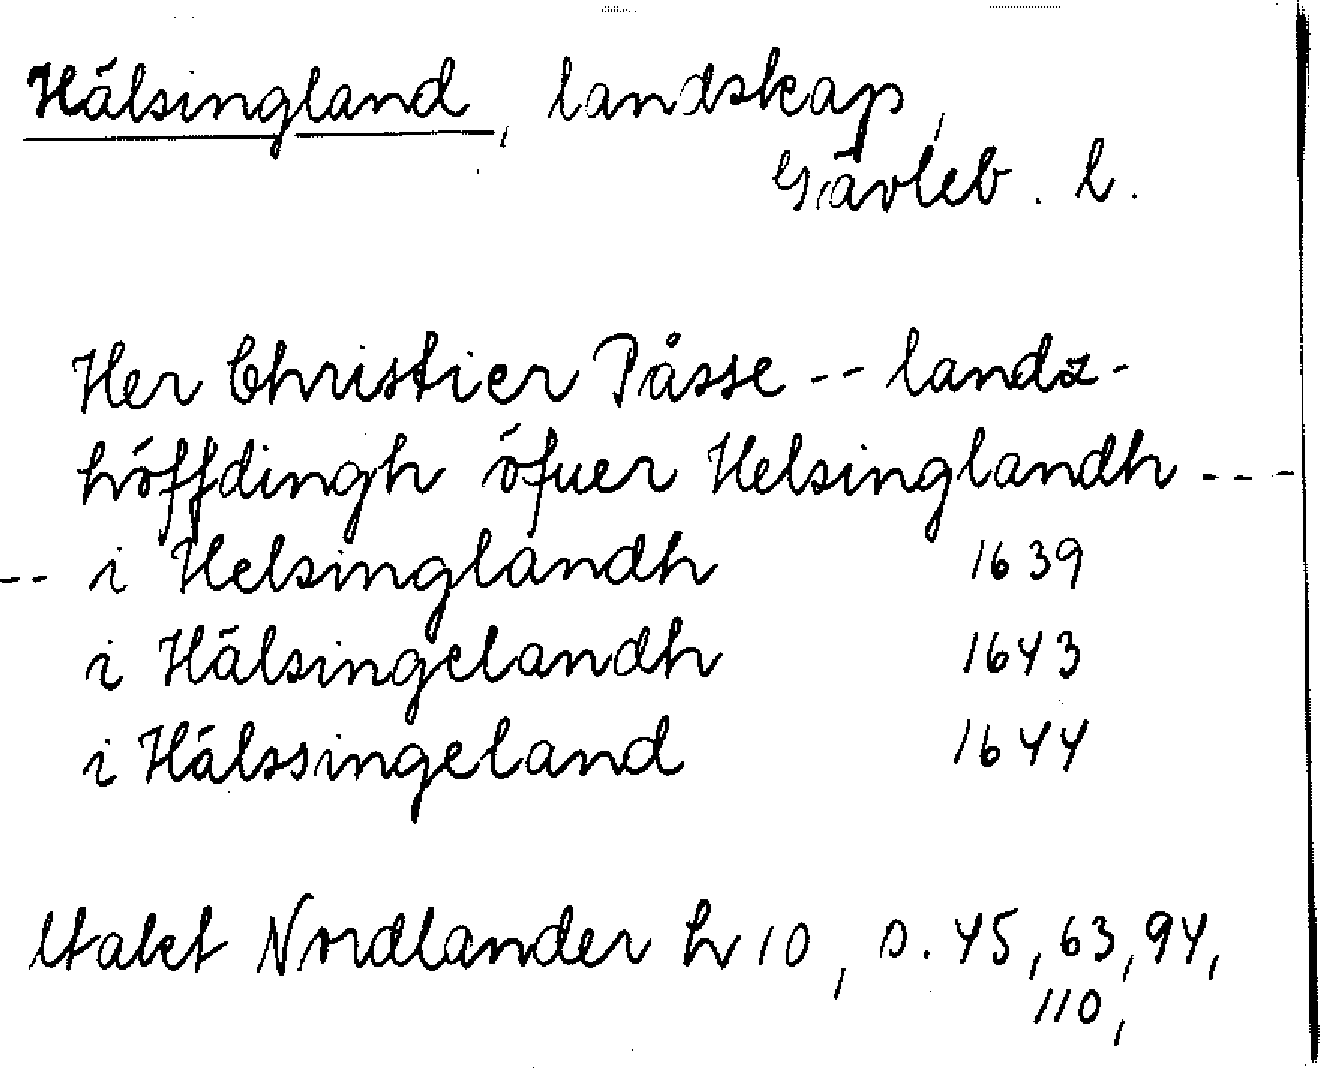 Hälsingland, landskap,
Gävleb. l.
Her Christier Påsse -- landz-
höffdingh öfuer Helsinglandh ---
-- i Helsinglandh 1639
i Hälsingelandh 1643
i Hälssingeland 1644
Nordlander h 10, s. 45, 63, 94,
110,